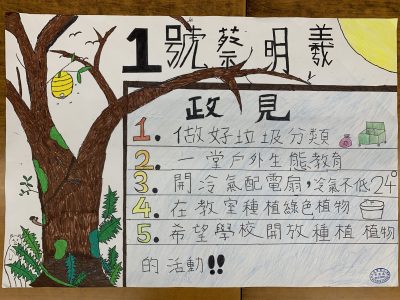 1號 蔡明義
政見
1. 做好垃圾分類
2. 一堂戶外生態教育
3. 開冷氣配電扇，冷氣不低24°
4. 在教室種植綠色植物
5. 希望學校開放種植植物
的活動!!